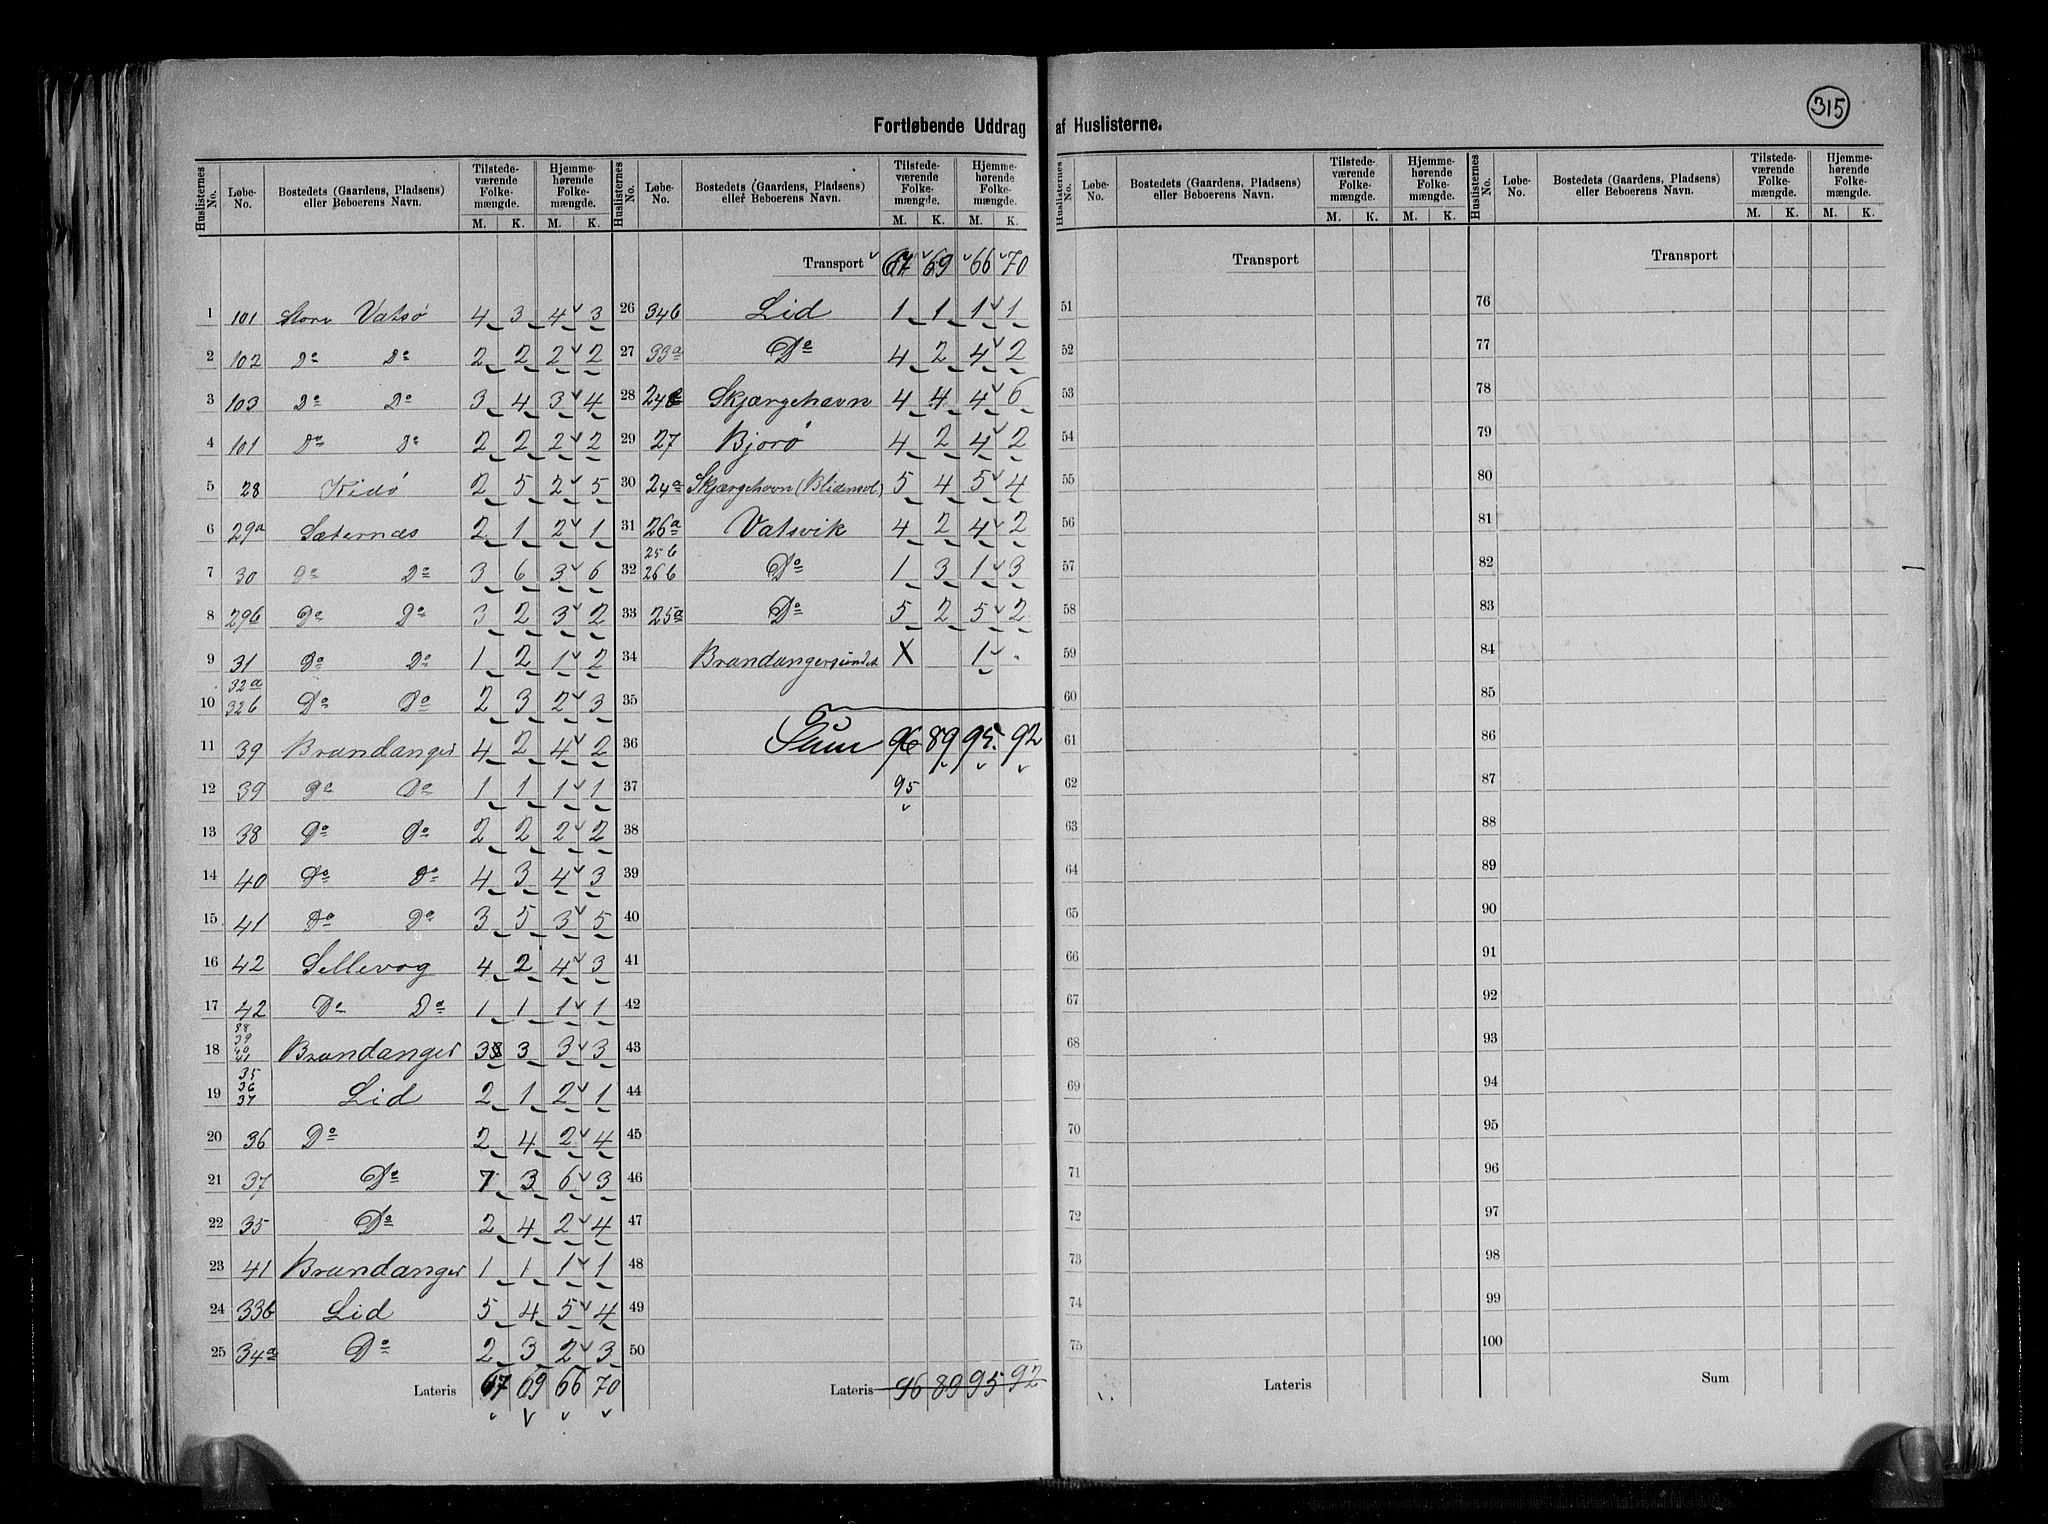 315
Fortløbende Uddrag af Huslisterne.
Huslisternes No. Løbe-No. Bostedets (Gaardens, Pladsens) eller Beboerens Navn. Tilstede-værende Folke-mængde. M. K. Hjemme-hørende Folke-mængde. M. K.
1 101 Store Vatsø 4 3 4 3
2 102 Do Do 2 2 2 2
3 103 Do Do 3 4 3 4
4 101 Do Do 2 2 2 2
5 28 Kidø 2 5 2 5
6 29a Sæternæs 2 1 2 1
7 30 Do Do 3 6 3 6
8 29b Do Do 3 2 3 2
9 31 Do Do 1 2 1 2
10 32a 32b Do Do 2 3 2 3
11 39 Brandanger 4 2 4 2
12 39 Do Do 1 1 1 1
13 38 Do Do 2 2 2 2
14 40 Do Do 4 3 4 3
15 41 Do Do 3 5 3 5
16 42 Sellevog 4 2 4 3
17 42 Do Do 1 1 1 1
18 38 39 40 41 Brandanger 3 3 3 3
19 35 36 37 Lid 2 1 2 1
20 36 Do 2 4 2 4
21 37 Do 7 3 6 3
22 35 Do 2 4 2 4
23 41 Brandanger 1 1 1 1
24 33b Lid 5 4 5 4
25 34a Do 2 3 2 3
Lateris 67 69 66 70
Huslisternes No. Løbe-No. Bostedets (Gaardens, Pladsens) eller Beboerens Navn. Tilstede-værende Folke-mængde. M. K. Hjemme-hørende Folke-mængde. M. K.
Transport 67 69 66 70
26 34b Lid 1 1 1 1
27 33a Do 4 2 4 2
28 24 Skjærgehavn 4 4 4 6
29 27 Bjorø 4 2 4 2
30 24a Skjærgehavn (Blidensol) 5 4 5 4
31 26a Vatsvik 4 2 4 2
32 25b 26b Do 1 3 1 3
33 25a Do 5 2 5 2
34 Brandangersundet X 1 -
35
36 Sum 96 89 95 92
37 95
38
39
40
41
42
43
44
45
46
47
48
49
50
Lateris 96 89 95 92
Huslisternes No. Løbe-No. Bostedets (Gaardens, Pladsens) eller Beboerens Navn. Tilstede-værende Folke-mængde. M. K. Hjemme-hørende Folke-mængde. M. K.
Transport
51
52
53
54
55
56
57
58
59
60
61
62
63
64
65
66
67
68
69
70
71
72
73
74
75
Lateris
Huslisternes No. Løbe-No. Bostedets (Gaardens, Pladsens) eller Beboerens Navn. Tilstede-værende Folke-mængde. M. K. Hjemme-hørende Folke-mængde. M. K.
Transport
76
77
78
79
80
81
82
83
84
85
86
87
88
89
90
91
92
93
94
95
96
97
98
99
100
Sum